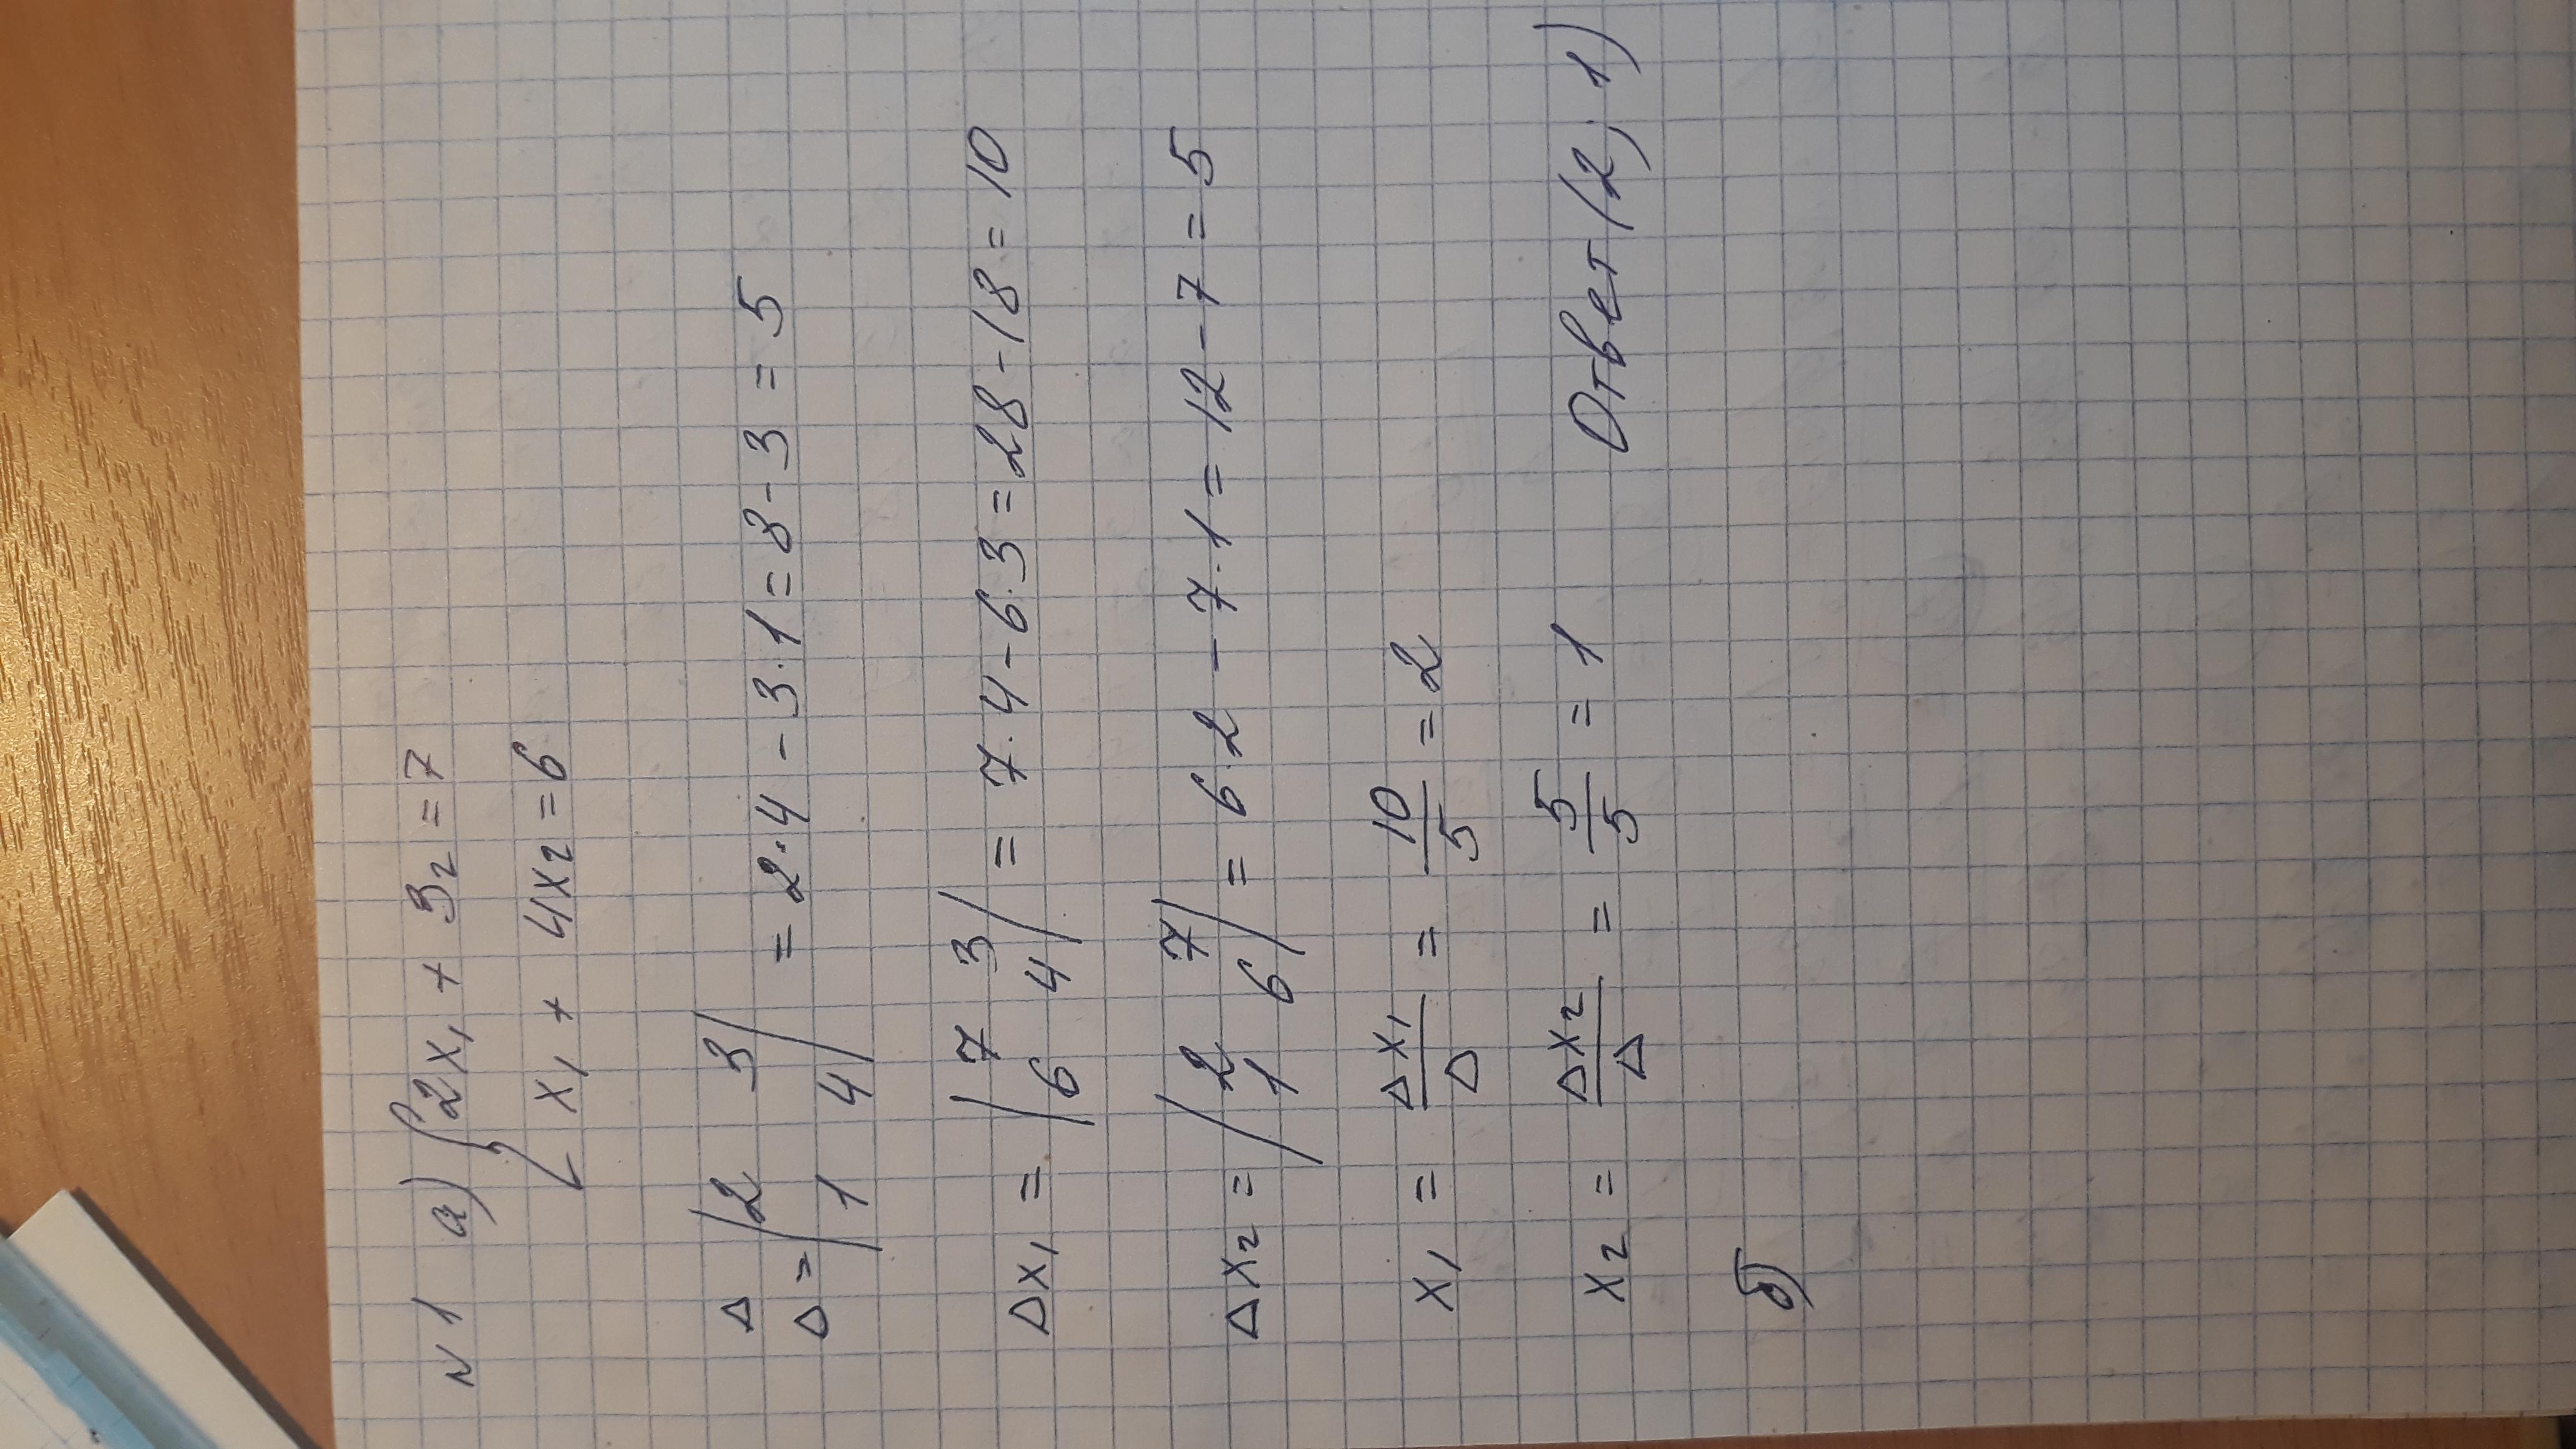 N1 а) { 2x₁ + 3₂ = 7
x₁ + 4x₂ = 6
Δ
Δ = | 2 3 | = 2·4 - 3·1 = 8 - 3 = 5
1 4
Δx₁ = | 7 3 | = 7·4 - 6·3 = 28 - 18 = 10
6 4
Δx₂ = | 2 7 | = 6·2 - 7·1 = 12 - 7 = 5
1 6
x₁ = Δx₁/Δ = 10/5 = 2
x₂ = Δx₂/Δ = 5/5 = 1 Ответ (2; 1)
б)